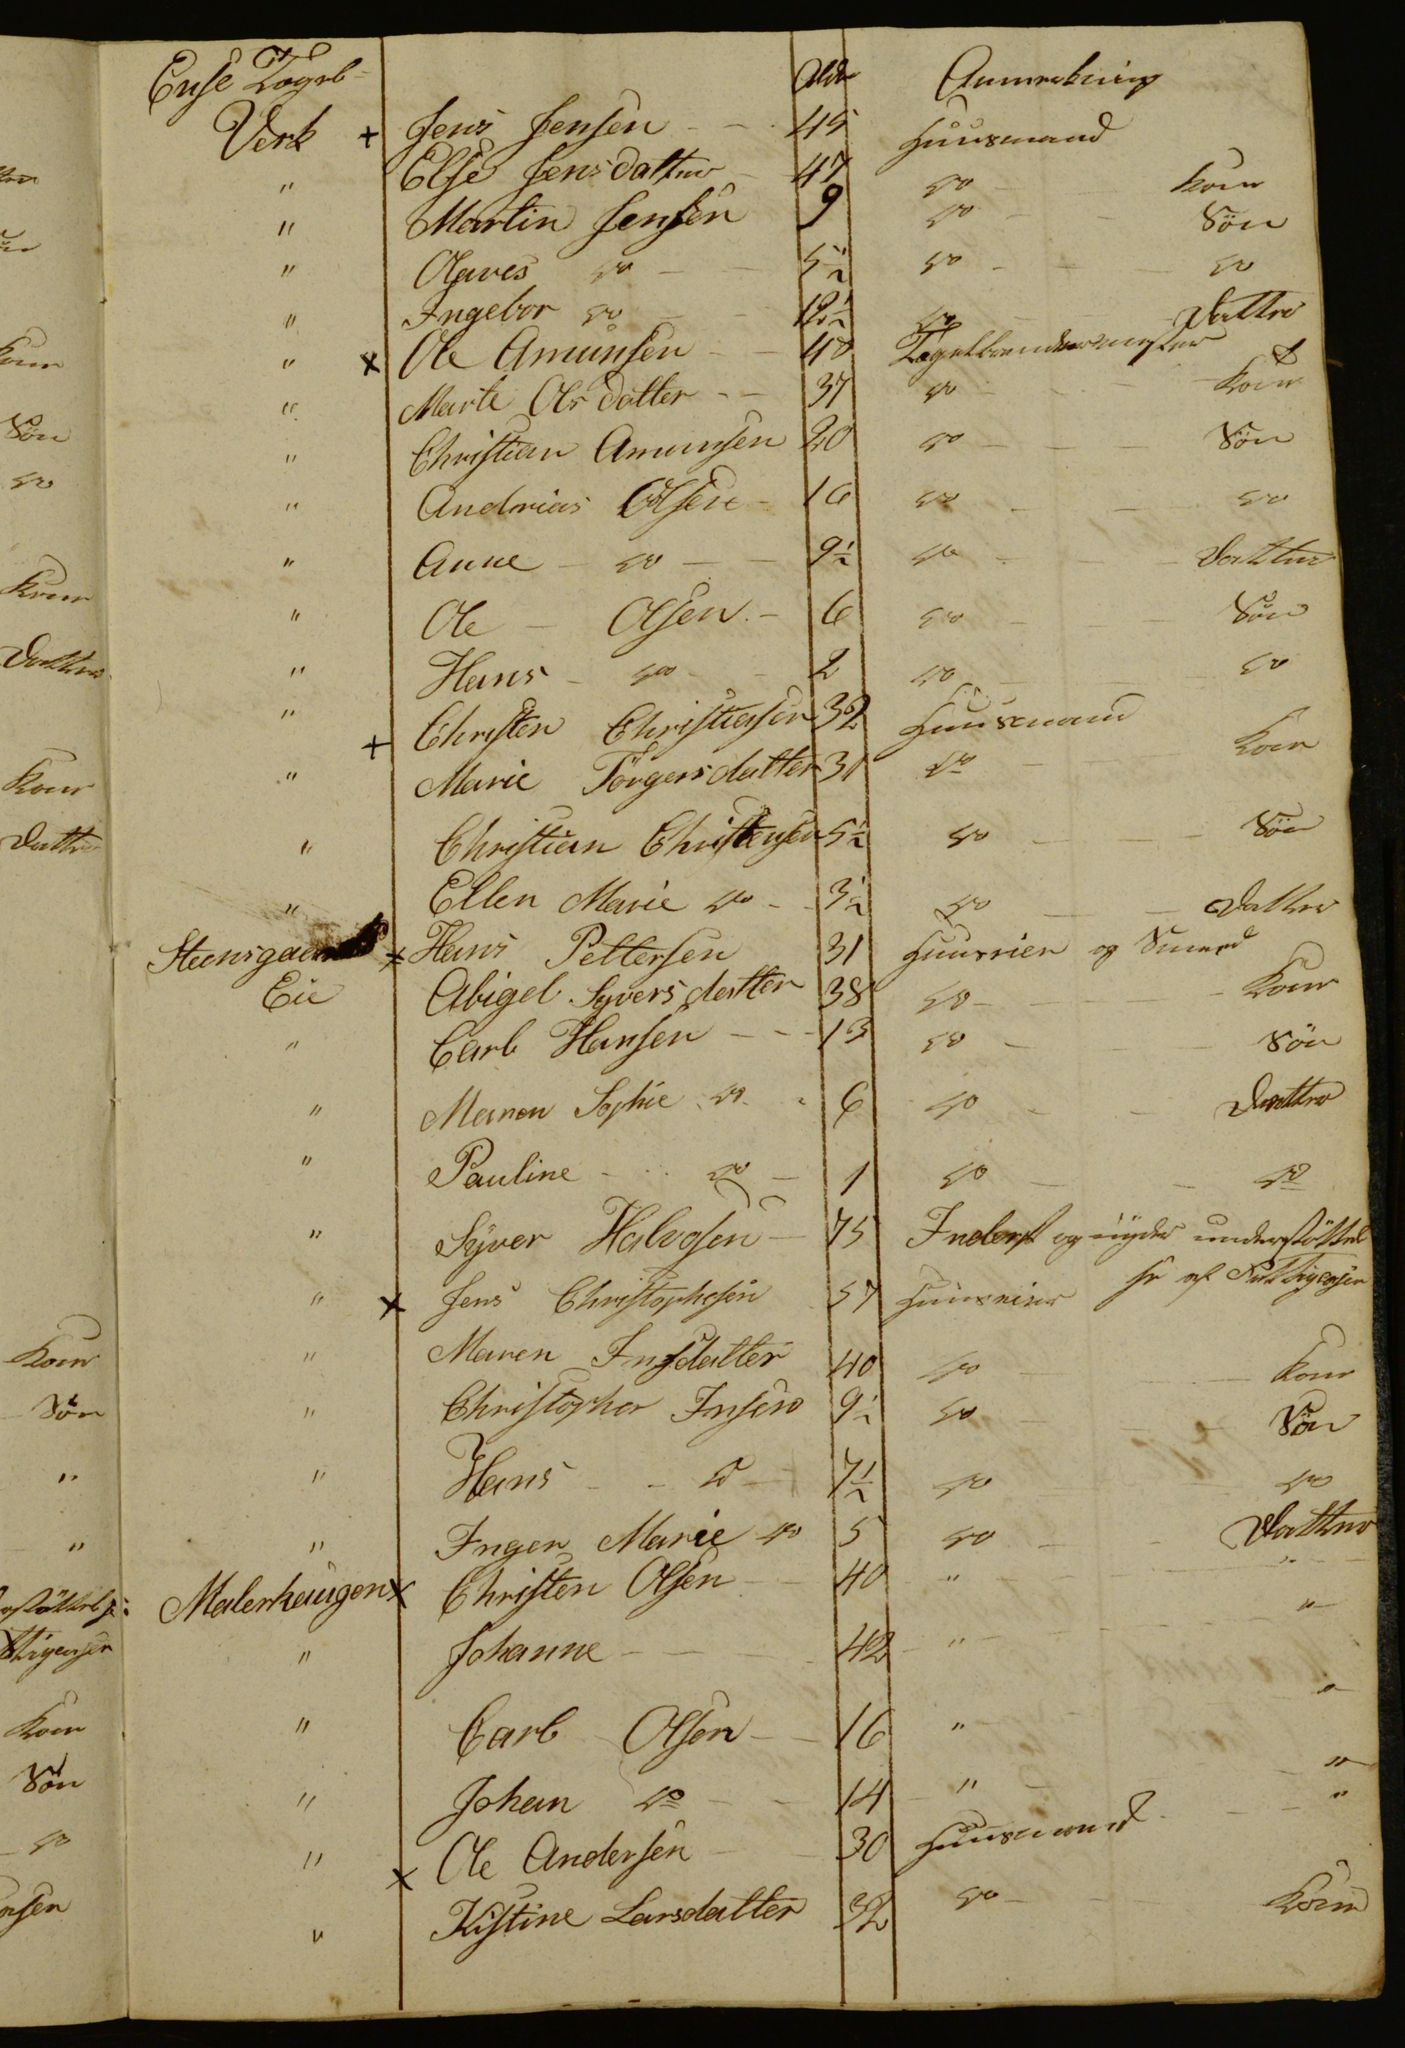 Ense Tagel- Alder Anmerkning
Verk + Jens Jensen - - 45 Huusmand
" Else Jensdatter - 47 do - Kone
" Martin Jensen 9 do - - Søn
" Olaves do - - 5½ do - - - do
" Ingebor do - - 12½ do - - Datter
" x Ole Amunsen - - 48 Tagelbrendermester
" Marte Olsdatter - - 37 do - - - Kone
" Christian Amunsen 20 do - - - Søn
" Andreas Olsen - 16 do - - - do
" Anne - do - - 9½ do - - - Datter
" Ole - Olsen. - 6 do - - - Søn
" Hans - do - - 2 do - - - do
" + Christen Christiansen 32 Huusmand
" Marie Törgersdatter 31 do - - - Kone
" Christian Christensen 5½ do - - - Søn
" Ellen Marie do - - 3½ do - - - Datter
Steensgaards x Hans Pettersen 31 Huuseier og Smed
Eie Abigel Syversdatter 38 do - - - Kone
" Carl Hansen - - - 13 do - - - Søn
" Maren Sophie do - 6 do - - Datter
" Pauline - - do - 1 do - - do
" Syver Halvosen - 75 Inderst og nyder understöttel
se af
" x Jens Christophesen 57 Huuseier
" Maren Insdatter 40 do - - - Kone
" Christopher Insen 9½ do - - Søn
" Hans - - do - 7½ do - - do
" Inger Marie do 5 do - - Datter
Malerhaugen x Christen Olsen - - 40 " - - "
" Johanne - - - - 42 - " - - "
" Carl Olsen - - 16 " - "
" Johan do - - 14 " - "
" x Ole Andersen - - 30 Huusmand - - "
" Kistine Larsdatter 32 do - - Kone
Kone
Søn
do
Kone
Datter
Kone
Datter
Kone
Søn
"
"
Kone
Søn
do